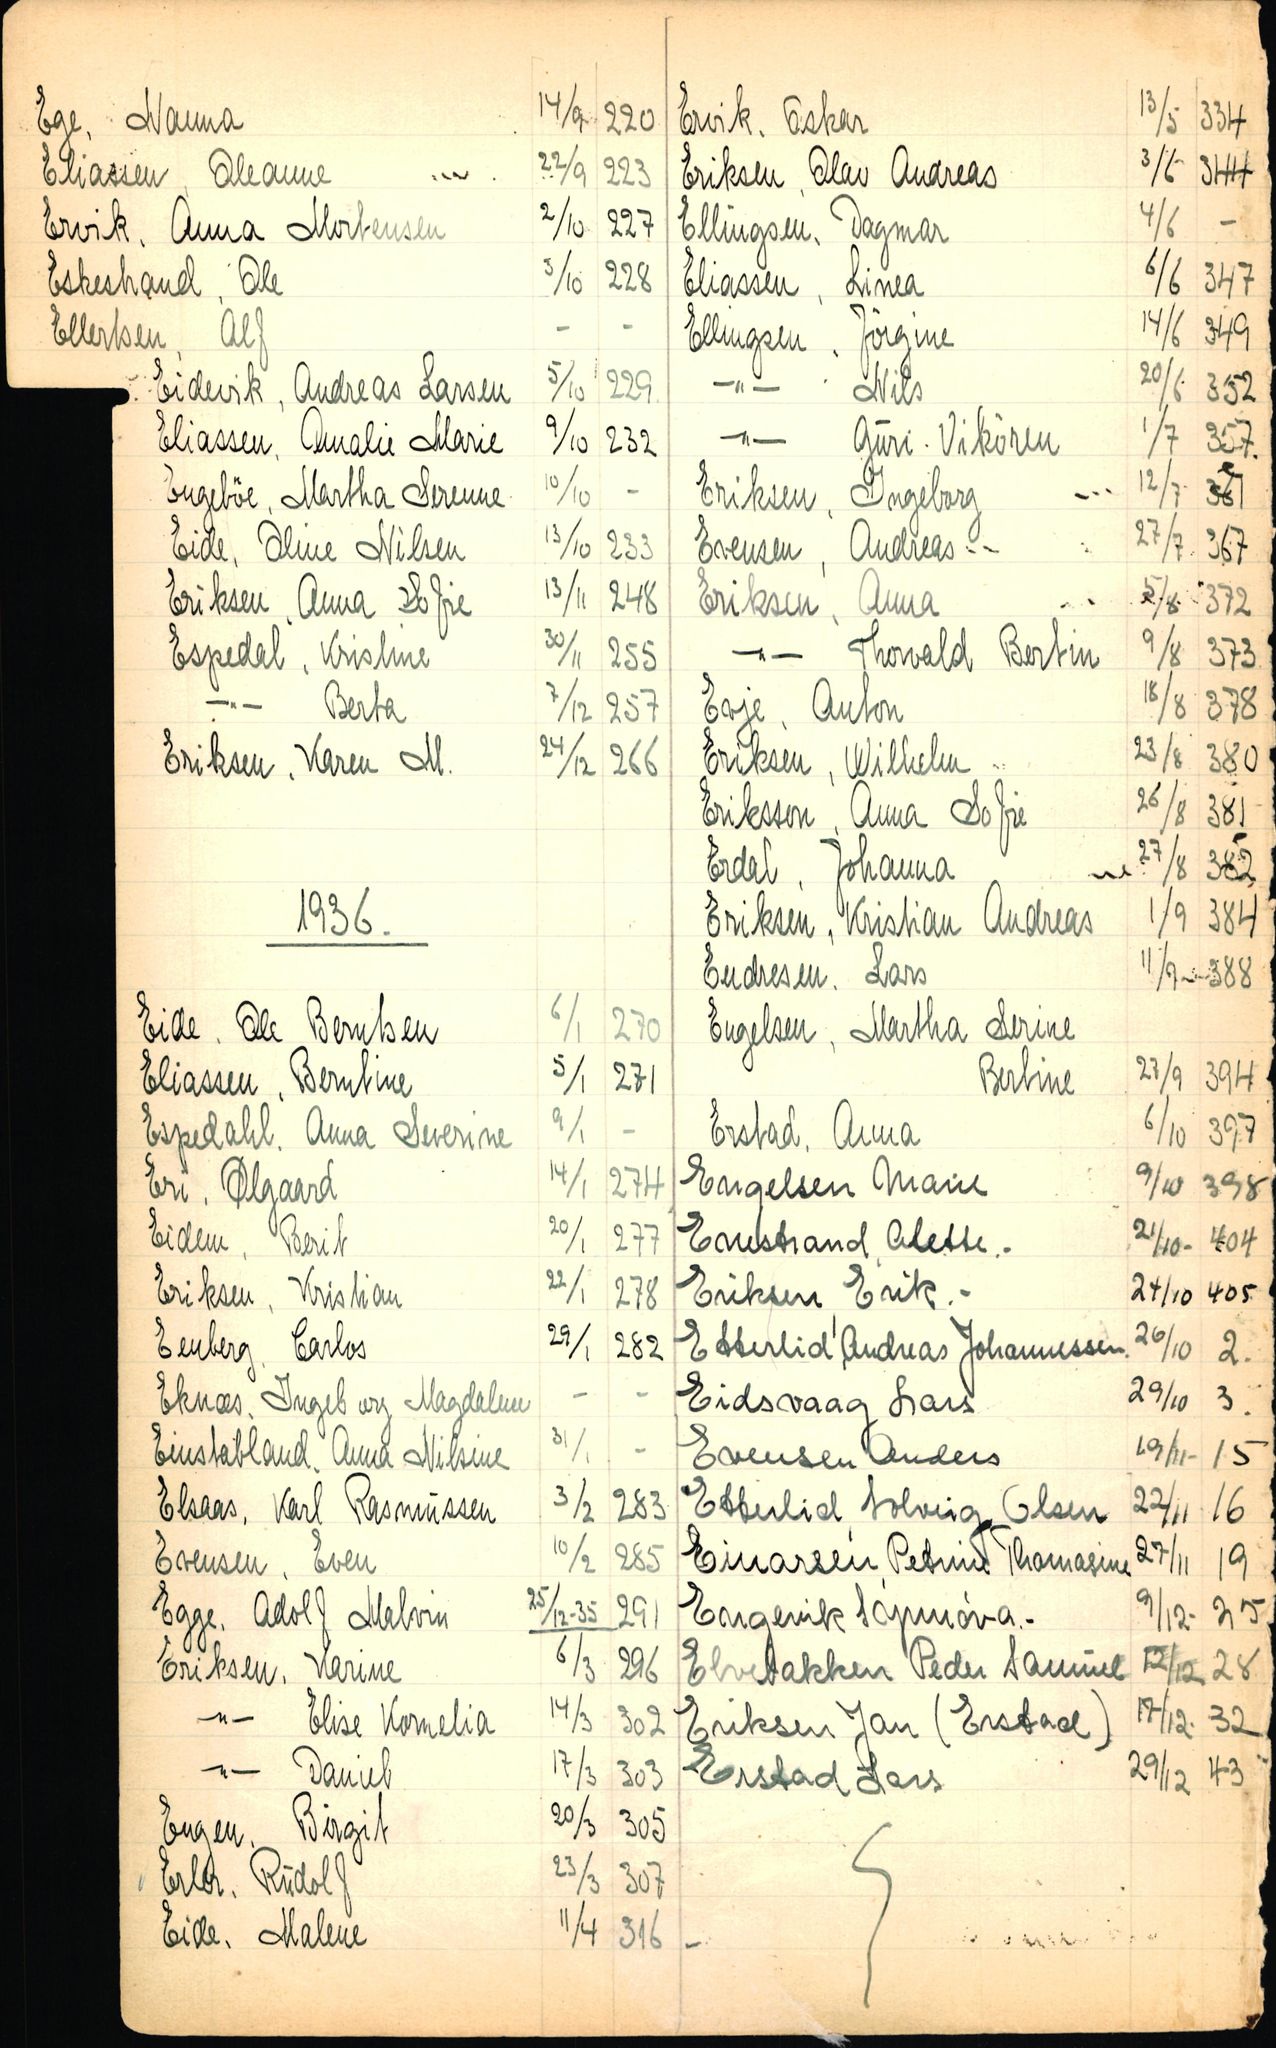 Ege, Nanna 14/9 220
Eliassen, Oleanne 22/9 223
Ervik, Anna Mortensen 2/10 227
Eskestrand, Ole 3/10 228
Ellertsen, Alf - -
Eidevik, Andreas Larsen 5/10 229
Eliassen, Amalie Marie 9/10 232
Engeböe, Martha Serenne 10/10 -
Eide, Oline Nilsen 13/10 233
Eriksen, Anna Sofie 13/11 248
Espedal, Kristine 30/11 255
-"- Berta 7/12 257
Eriksen, Karen M. 24/12 266
1936.
Eide, Ole Berntsen 6/1 270
Eliassen, Berntine 5/1 271
Espedahl, Anna Severine 9/1 -
Eri, Ølgaard 14/1 274
Eidem, Berit 20/1 277
Eriksen, Kristian 22/1 278
Eenberg, Carlos 29/1 282
Eknæs, Ingeborg Magdalene - -
Einstabland, Anna Nilsine 31/1 -
Elsaas, Karl Rasmussen 3/2 283
Evensen, Even 10/2 285
Egge, Adolf Malvin 25/12-35 291
Eriksen, Karine 6/3 296
-"- Elise Kornelia 14/3 302
-"- Daniel 17/3 303
Engen, Birgit 20/3 305
Erler, Rudolf 23/3 307
Eide, Malene 11/4 316
Ervik, Oskar 13/5 334
Eriksen, Olav Andreas 3/6 344
Ellingsen, Dagmar 4/6 -
Eliassen, Linea 6/6 347
Ellingsen, Jörgine 14/6 349
-"- Nils 20/6 352
-"- Guri Vikören 1/7 357
Eriksen, Ingeborg 12/7 361
Evensen, Andreas 27/7 367
Eriksen, Anna 5/8 372
-"- Thorvald Bertin 9/8 373
Evje, Anton 18/8 378
Eriksen, Wilhelm 23/8 380
Eriksson, Anna Sofie 26/8 381
Erdal, Johanna 27/8 382
Eriksen, Kristian Andreas 1/9 384
Endresen, Lars 11/9 388
Engelsen, Martha Serine
Bertine 27/9 394
Erstad, Anna 6/10 397
Engelsen Marie 9/10 398
Enestrand, Alette.- 21/10- 404
Eriksen, Erik.- 24/10 405
Etterlid, Andreas Johannessen. 26/10 2.
Eidsvaag Lars 29/10 3.
Evensen Anders 19/11- 15
Etterlid, Solveig Olsen 22/11 16
Einarsen, Petrine Thomasine 27/11 19
Engevik 9/12- 25
Elvebakken Peder Samuel 12/12 28
Eriksen Jan (Erstad) 17/12. 32
Erstad Lars 29/12 43